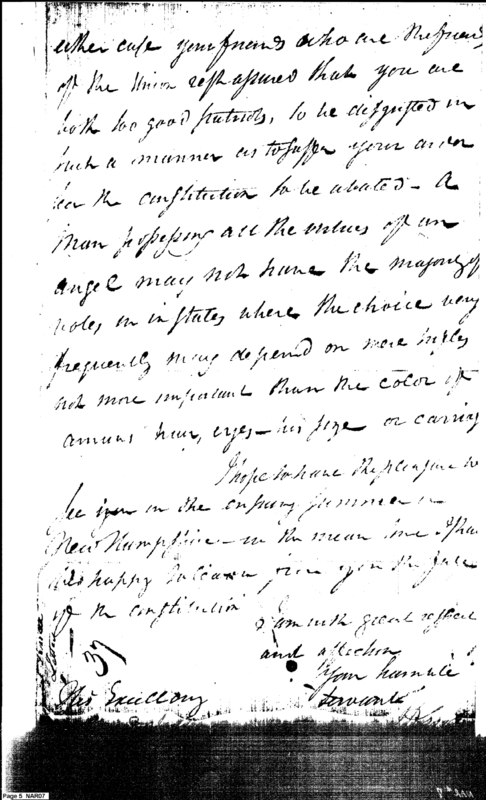 either case your friends who are the friends
of the Union rest assured that you are
both too good patriots, to be disgusted in
such a manner as to suffer your ardor
for the constitution to be abated - A
man possessing all the virtues of an
angel may not have the majority of
votes in in states where the choice very
frequently may depend on mere trifles
not more important than the color of
a mans hair, eyes - his size or carriag
I hope to have the pleasure to
see you in the ensuing summer in
New Hampshire - in the mean time I shall
be happy to learn from you the fate
of the constitution
I am with great respect
and affection
Your humble
servant
37
His Excellency
Page 5 NAR07